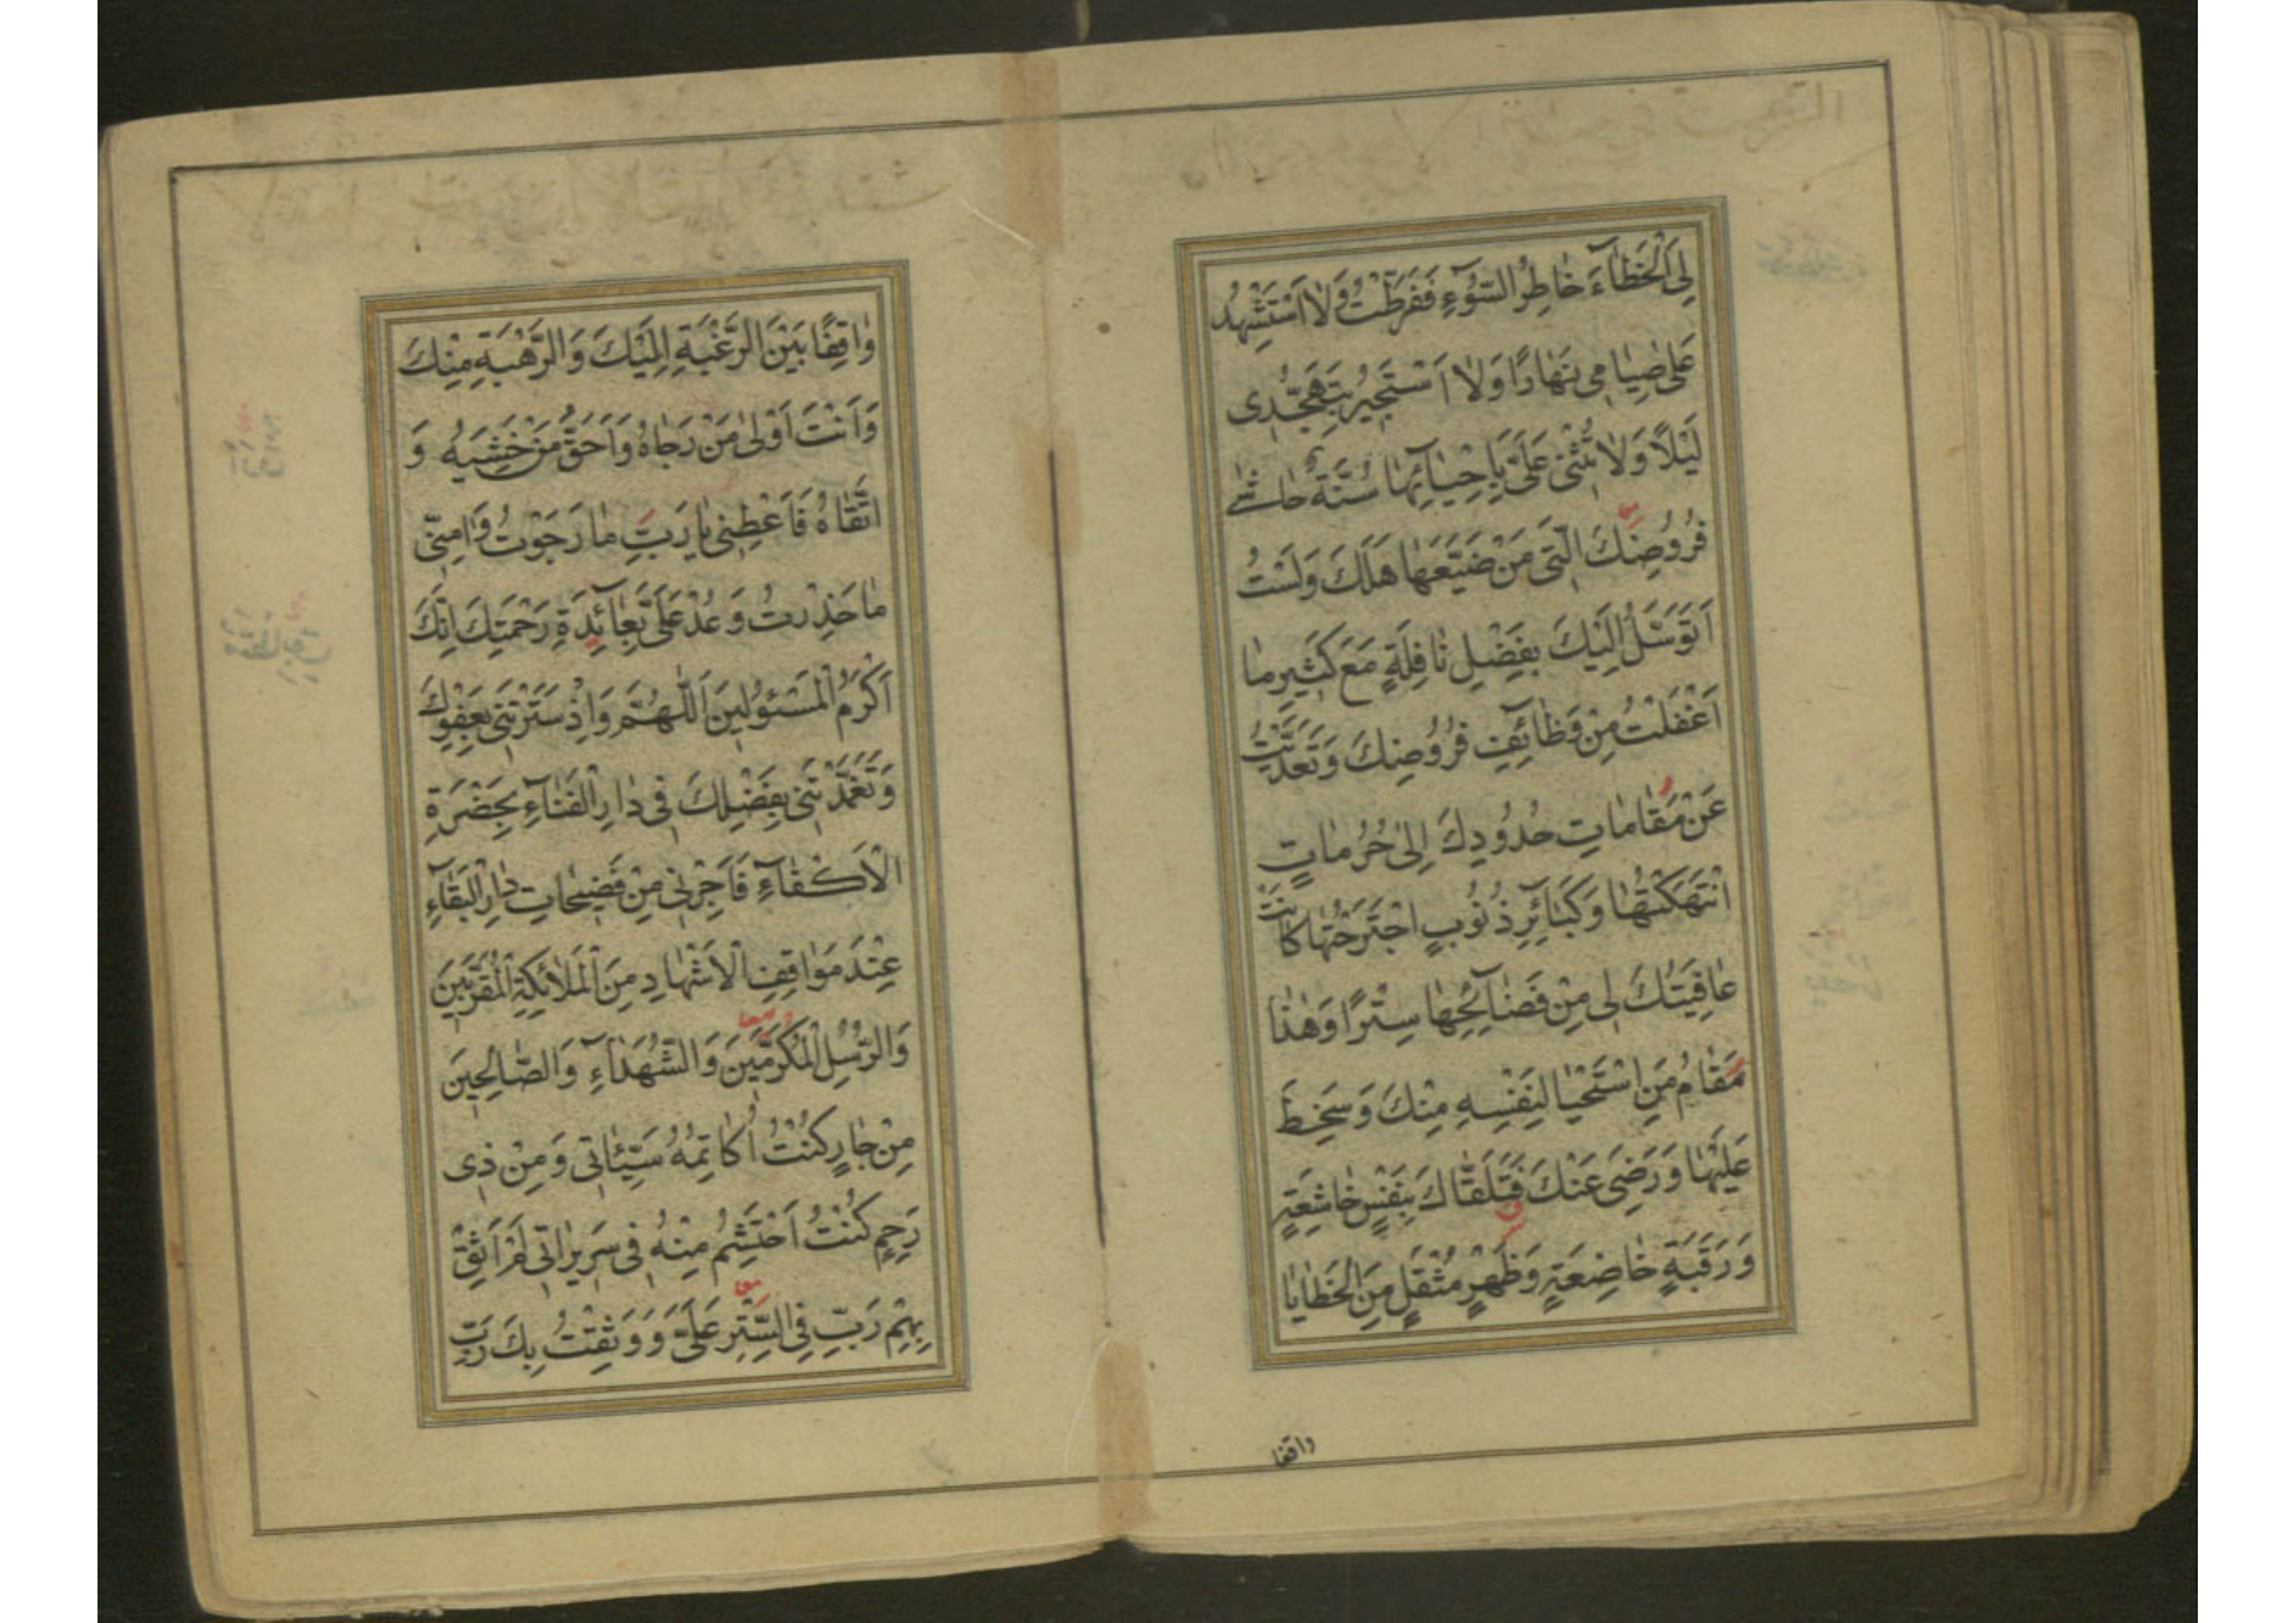 لِىَ الْخَطٰاۤءَ خٰاطِرُ السّوُۤءِ فَفَرَطْتُ وَلاٰ اَسْتَشْهِدُ
عَلىٰ صِيٰامى نَهٰارًا وَلاٰ اَسْتَجيرُ بِتَهَجُّدى
لَيْلاً وَلاٰ تُثْنى عَلَىَّ بِاِحْيٰاۤئِهٰا سُنَّةٌ حٰاشىٰ
فُرُوضِكَ الَّتى مَنْ ضَيَّعَهٰا هَلَكَ وَلَسْتُ
اَتَوَسَّلُ اِلَيْكَ بِفَضْلِ نٰافِلَةٍ مَعَ كَثيرِ مٰا
اَغْفَلْتُ مِنْ وَظٰاۤئِفِ فُرُوضِكَ وَتَعَدَّيْتُ
عَنْ مَقٰامٰاتِ حُدُودِكَ اِلىٰ حُرُمٰاتٍ
انْتَهَكْتُهٰا وَكَبٰاۤئِرِ ذُنُوبٍ اجْتَرَحْتُهٰا كٰانَتْ
عٰافِيَتُكَ لى مِنْ فَضٰاۤئِحِهٰا سِتْرًا وَهٰذٰا
مَقٰامُ مَنِ اسْتَحْيٰا لِنَفْسِهِ مِنْكَ وَسَخِطَ
عَلَيْهٰا وَرَضِىَ عَنْكَ فَتَلَقّٰاكَ بِنَفْسٍ خٰاشِعَةٍ
وَرَقَبَةٍ خٰاضِعَةٍ وَظَهْرٍ مُثْقَلٍ مِنَ الْخَطٰايٰا
واقفا
وٰاقِفًا بَيْنَ الرَّغْبَةِ اِلَيْكَ وَالرَّهْبَةِ مِنْكَ
وَاَنْتَ اَوْلىٰ مَنْ رَجٰاهُ وَاَحَقُّ مَنْ خَشِيَهُ وَ
اتَّقٰاهُ فَاَعْطِنى يٰا رَبِّ مٰا رَجَوْتُ وَاٰمِنّى
مٰا حَذِرْتُ وَعُدْ عَلَىَّ بِعٰاۤئِدَةِ رَحْمَتِكَ اِنَّكَ
اَكْرَمُ الْمَسْئُولينَ اَللّٰهُمَّ وَاِذْ سَتَرْتَنى بِعَفْوِكَ
وَتَغَمَّدْتَنى بِفَضْلِكَ فى دٰارِ الْفَنٰاۤءِ بِحَضْرَةِ
الْاَكْفٰاۤءِ فَاَجِرْنى مِنْ فَضيحٰاتِ دٰارِ الْبَقٰاۤءِ
عِنْدَ مَوٰاقِفِ الْاَشْهٰادِ مِنَ الْمَلاٰئِكَةِ الْمُقَرَّبينَ
وَالرُّسُلِ الْمُكَرَّمينَ وَالشُّهَدٰاۤءِ وَالصّٰالِحينَ
مِنْ جٰارٍ كُنْتُ اُكٰاتِمُهُ سَيِّئٰاتى وَمِنْ ذى
رَحِمٍ كُنْتُ اَحْتَشِمُ مِنْهُ فى سَريرٰاتى لَمْ اَثِقْ
بِهِمْ رَبِّ فِى السِّتْرِ عَلَىَّ وَوَثِقْتُ بِكَ رَبِّ